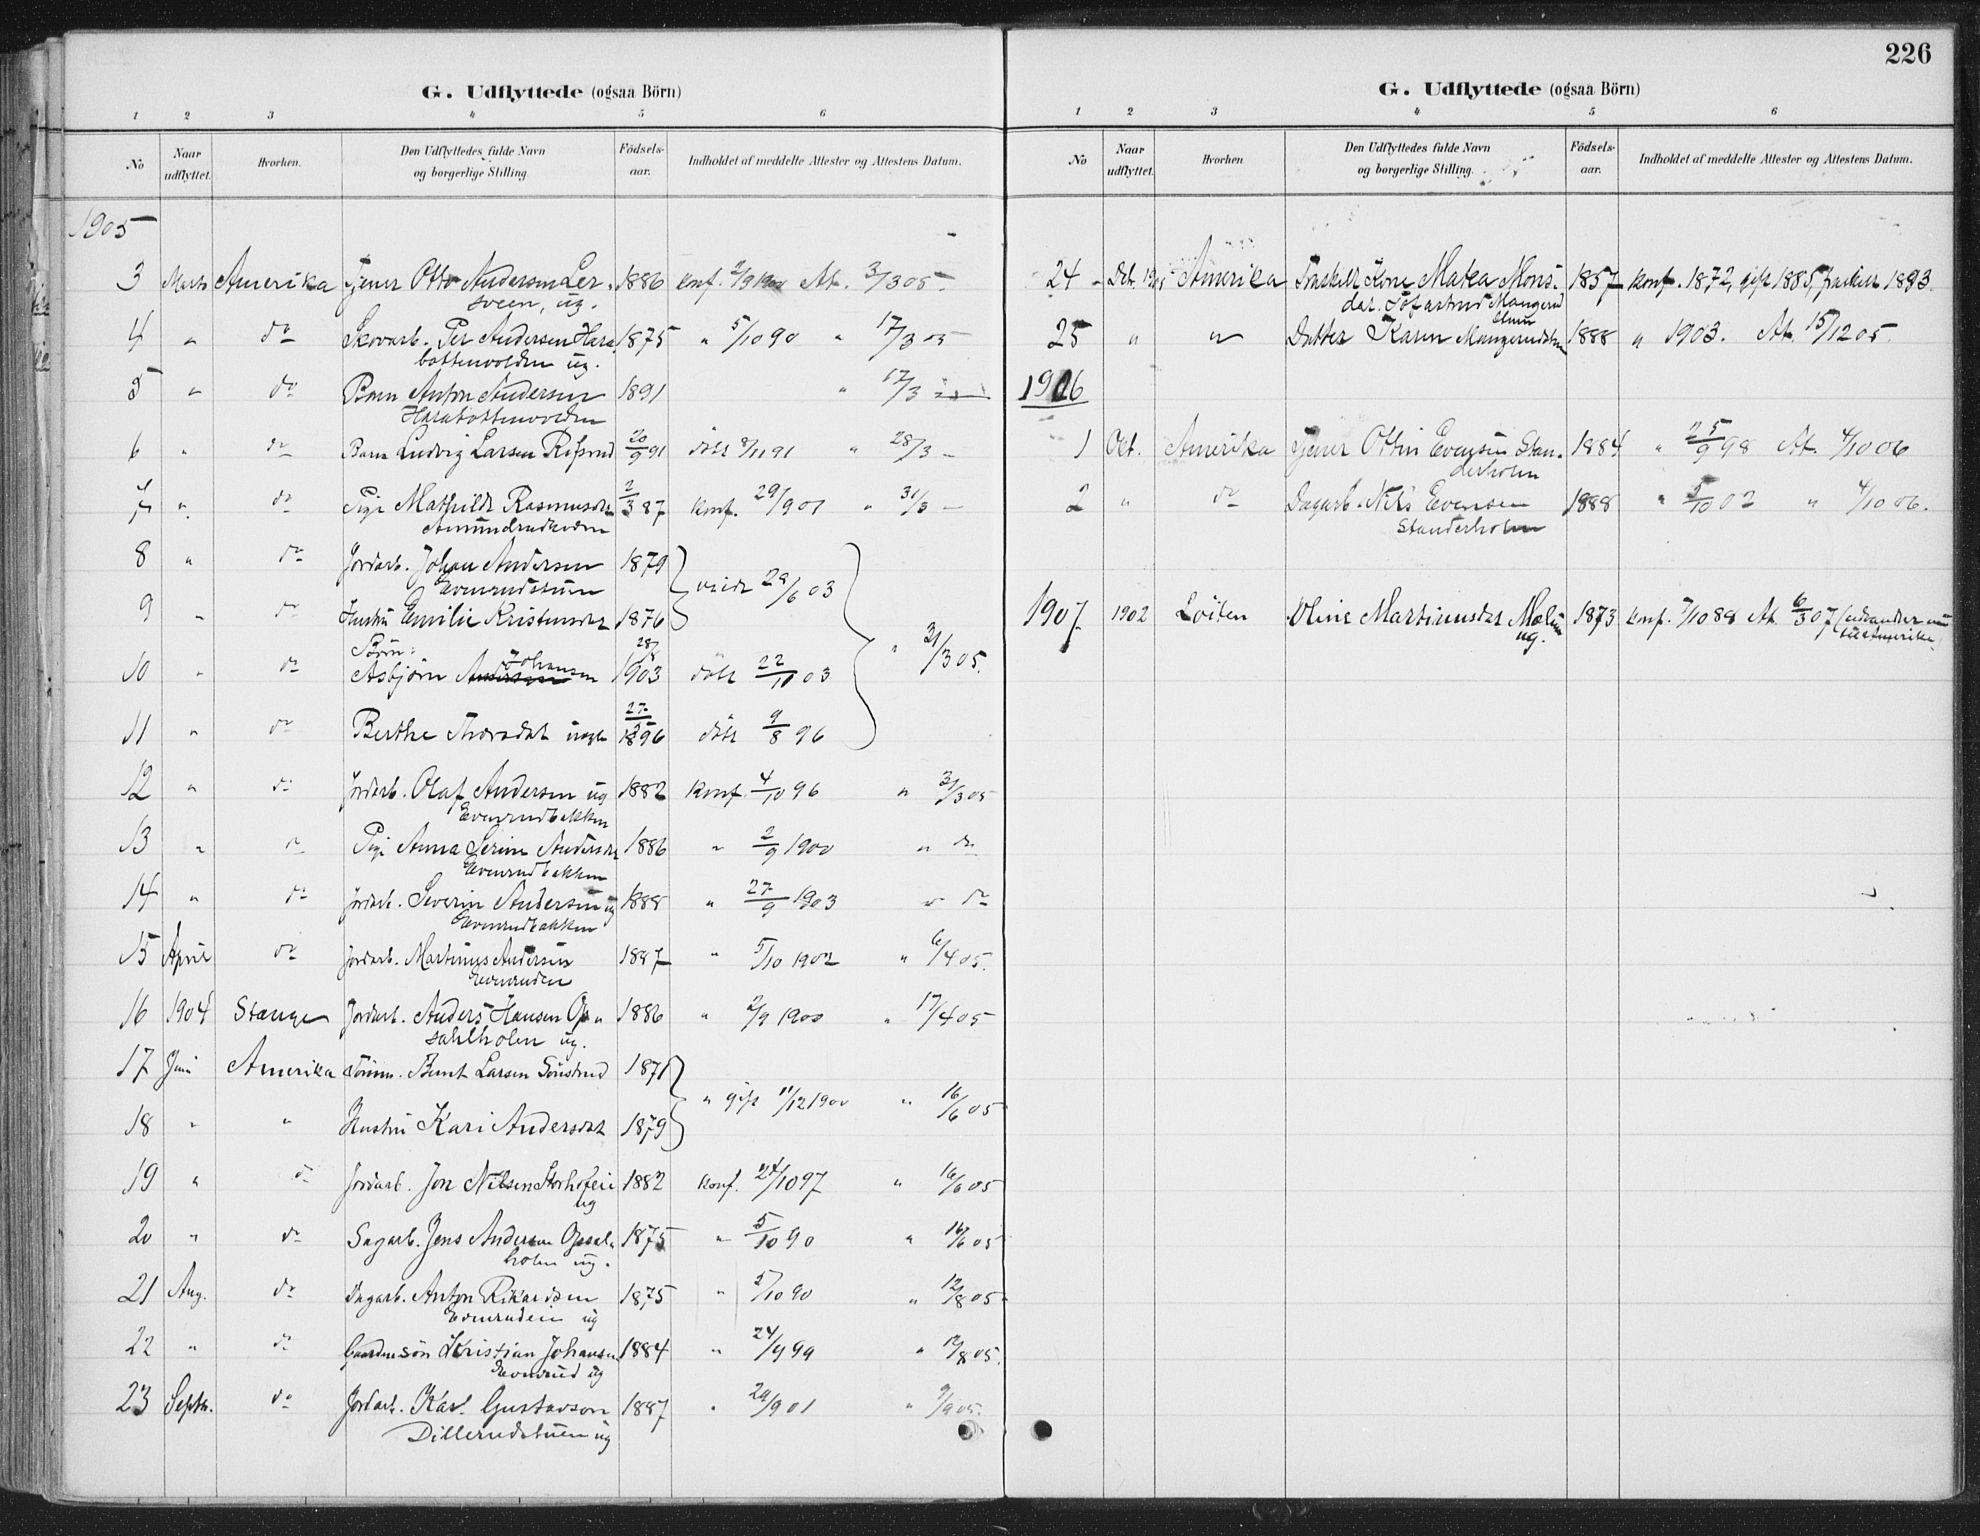 226
G. Udflyttede (ogsaa Börn)
1 2 3 4 5 6
No Naar udflyttet. Hvorhen. Den Udflyttedes fulde Navn og borgerlige Stilling. Födsels-aar. Indholdet af meddelte Attester og Attestens Datum.
1905
3 Marts Amerika Tjener Otto Andersen Ler- 1886 Konf. 2/9 1900 At. 3/3 05.
sveen, ug.
4 " do Skovarb. Per Andersen Hara 1875 " 5/10 90 " 17/3 05
bottenvolden ug.
5 " do Barn Anton Andersen 1891 " 17/3
Harabottenvolden
6 " do Barn Ludvig Larsen Rifsrud 20/9 91 döbt 8/11 91 " 28/3 —
7 " do Pige Mathilde Rasmusdtr 2/3 87 Konf. 29/9 01 " 31/3 —
8 " do Jordarb. Johan Andersen 1879 viede 29/6 03
Evenrudstuen
9 " do Hustru Emilie Kristensdtr 1876
Börn: 28/8
10 " do Asbjörn Johansen 1903 döbt 22/11 03 " 31/3 05.
27
11 " do Berthe Thorsdat 1896 döbt 9/8 96
12 " do Jordarb. Olaf Andersen ug 1882 Konf. 4/10 96 " 31/3 05
Evenrudbakken
13 " do Pige Anna Serine Andersdtr 1886 " 2/9 1900 " do
Evenrudbakken
14 " do Jordarb. Severin Andersen ug 1888 " 27/9 1903 " do
Evenrudbakken
15 April do Jordarb. Martinus Andersen 1887 " 5/10 1902 " 6/4 05.
Evenruden
16 1904 Stange Jordarb. Anders Hansen Op- 1886 " 2/9 1900 " 17/4 05
sahlholen ug.
17 Juni Amerika Tömm. Bernt Larsen Sönstrud 1871 " gift 11/12 1900 " 16/6 05
18 " " Hustru Kari Andersdat 1879
19 " do Jordarb. Jon Nilsen Storhofeie 1882 Konf. 24/10 97 " 16/6 05
ug
20 " do Sagarb. Jens Andersen Opsal- 1875 " 5/10 90 " 16/6 05
holen ug.
21 Aug. do Dagarb. Anton Rikardsen 1875 " 5/10 90 " 12/8 05
Evenrudeie ug
22 " do Gaardmsön Kristian Johansen 1884 " 24/9 99 " 12/8 05.
Evenrud ug
23 Septr. do Jordarb. Karl Gustavson 1887 " 29/9 01 " 9/9 05.
Dillerudstuen ug
G. Udflyttede (ogsaa Börn)
1 2 3 4 5 6
No Naar udflyttet. Hvorhen. Den Udflyttedes fulde Navn og borgerlige Stilling. Födsels-aar. Indholdet af meddelte Attester og Attestens Datum.
24 Dec. 1905 Amerika Fraskilt Kone Mathea Mons- 1857 Konf. 1872, gift 1885, fraskilt 1893
dat. Mangerud
25 " " Datter Karen Mangerudstuen 1888 " 1903. At. 15/12 05.
1906
1 Okt. Amerika Tjener Ottin Evensen Stan- 1884 " 25/9 98 At. 4/10 06
derholen
2 " do Dagarb. Nils Evensen 1888 " 5/10 02 " 4/10 06.
Standerholen
1907 1902 Löiten Oline Martinusdat Mælum 1873 Konf. 7/10 88 At. 6/3 07 (udvandrer nu
ug. til Amerika.